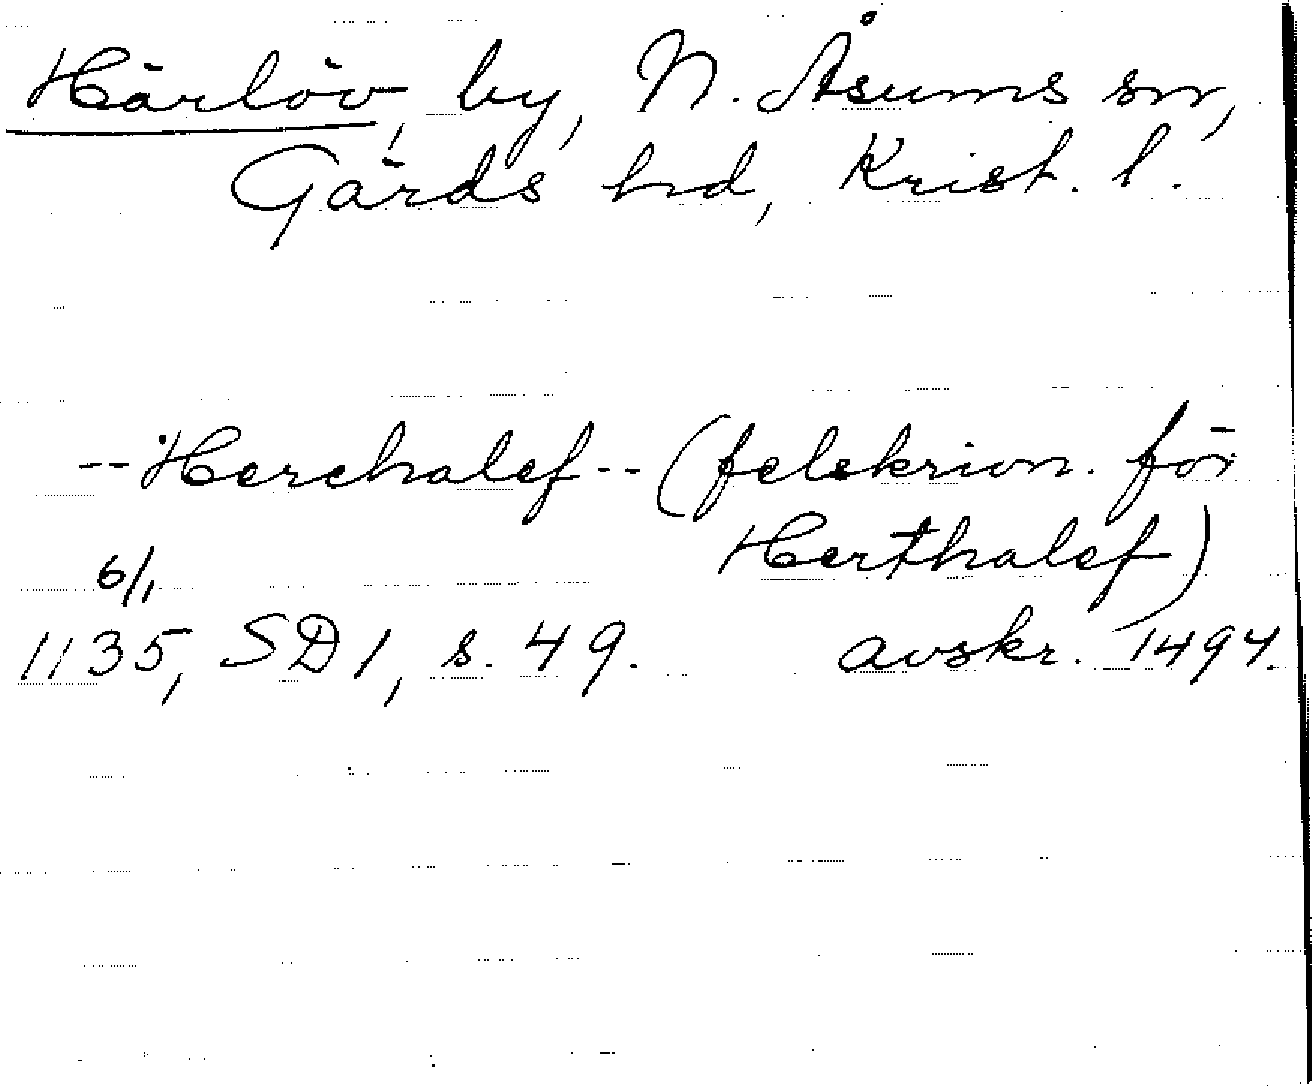 Härlöv, by, N. Åsums sn,
Gärds hd, Krist. l.
--Herchalef-- (felskrivn. för
Herthalef)
6/1
1135, SD1, s. 49. avskr. 1494.